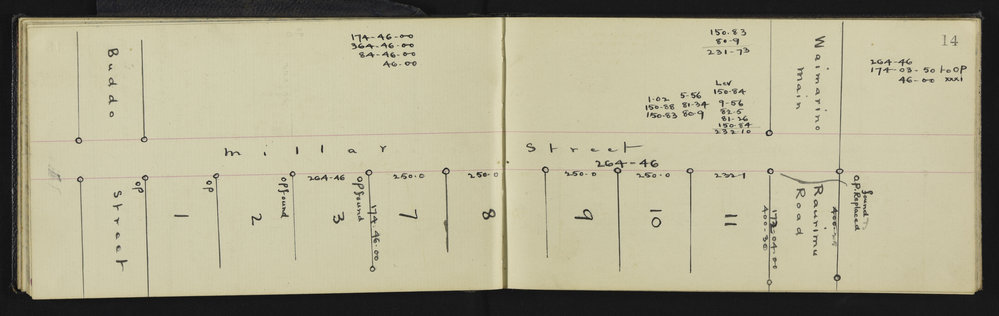 14
174-46-00
364-46-00
84-46-00
46-00
150.83
80.9
231-73
264-46
174-03-50 to OP
46-00 xxxi
Buddo
Waimarino
main
Lcv
150.84
9-56
82.5
81-26
150.84
232.10
1.02
150.88
150.83
5-56
81-34
80.9
Millar Street
264-46
Street
OP
1
OP
2
OP found
264-46
3
OP found
174-46-00
250.0
7
250.0
8
250.0
9
250.0
10
11
232-1
173-04-00
400-30
Raurimu
Road
found
O.P. Replaced